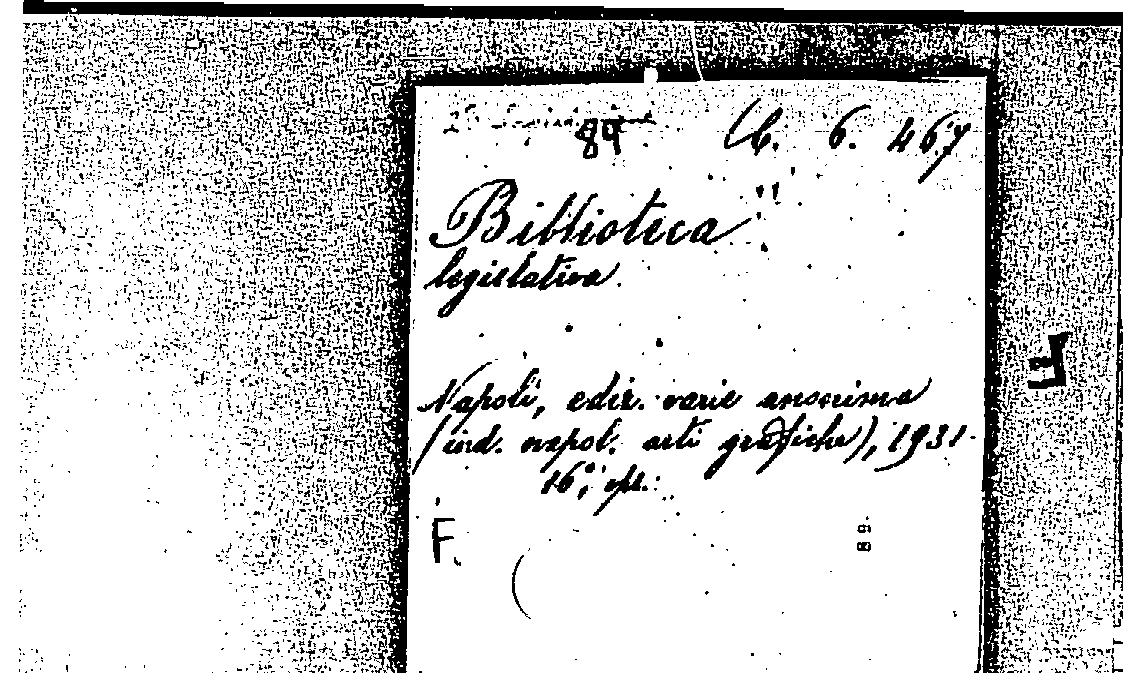 89 C. 6. 467
Biblioteca
legislativa.
Napoli, ediz. varie anonima
(ind. napol. arti grafiche), 1931-
16°, opl.
F.
89
F